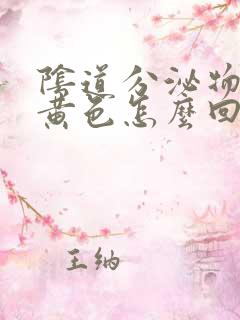 陰道分泌物
黄色怎麼回
王纳